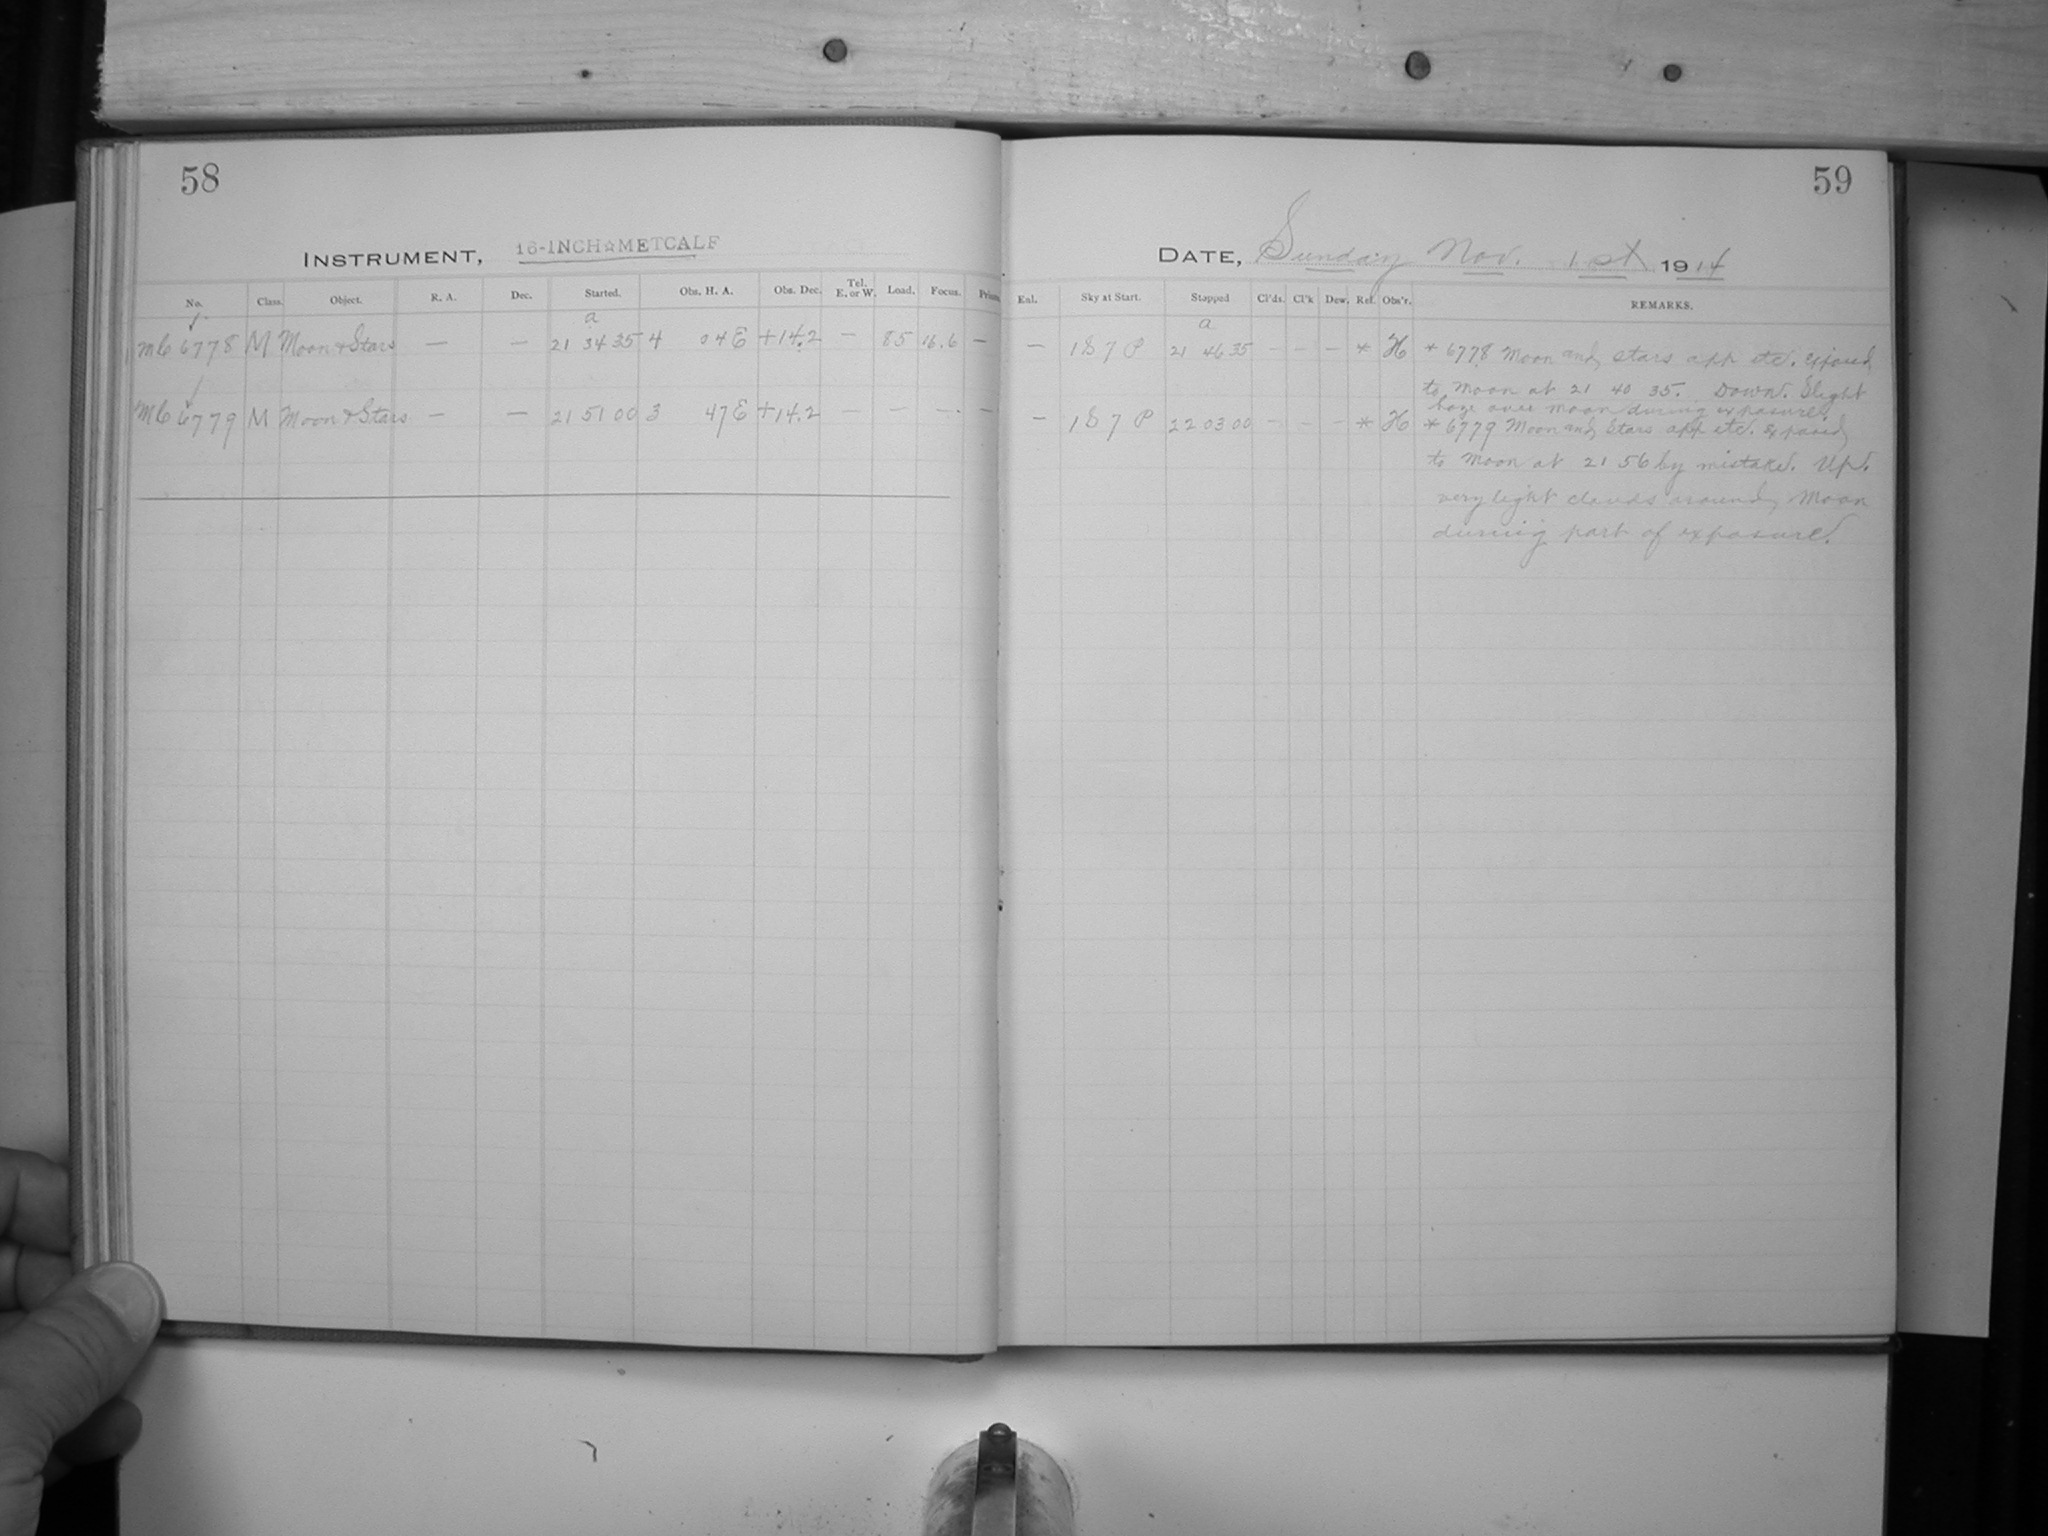 58
59
INSTRUMENT, 16-INCH☆METCALF
DATE, Sunday Nov. 1st 1914
No. Class. Object. R. A. Dec. Started. Obs. H. A. Obs. Dec. Tel. E. or W. Load. Focus. Prism. Eal. Sky at Start. Stopped Cl'ds. Cl'k Dew. Ref. Obs'r. REMARKS.
a a
MC 6778 M Moon & Stars — — 21 34 35 4 04 E +14.2 — 85 16.6 — — 1 S 7 P 21 46 35 - - - * H * 6778 Moon and stars app etc. Exposed
to Moon at 21 40 35. Down. Slight
haze over moon during exposure.
MC 6779 M Moon & Stars — — 21 51 00 3 47 E +14.2 — — — — — 1 S 7 P 22 03 00 - - - * H * 6779 Moon and Stars app etc. Exposed
to Moon at 21 56 by mistake. Up.
very light clouds around Moon
during part of exposure.